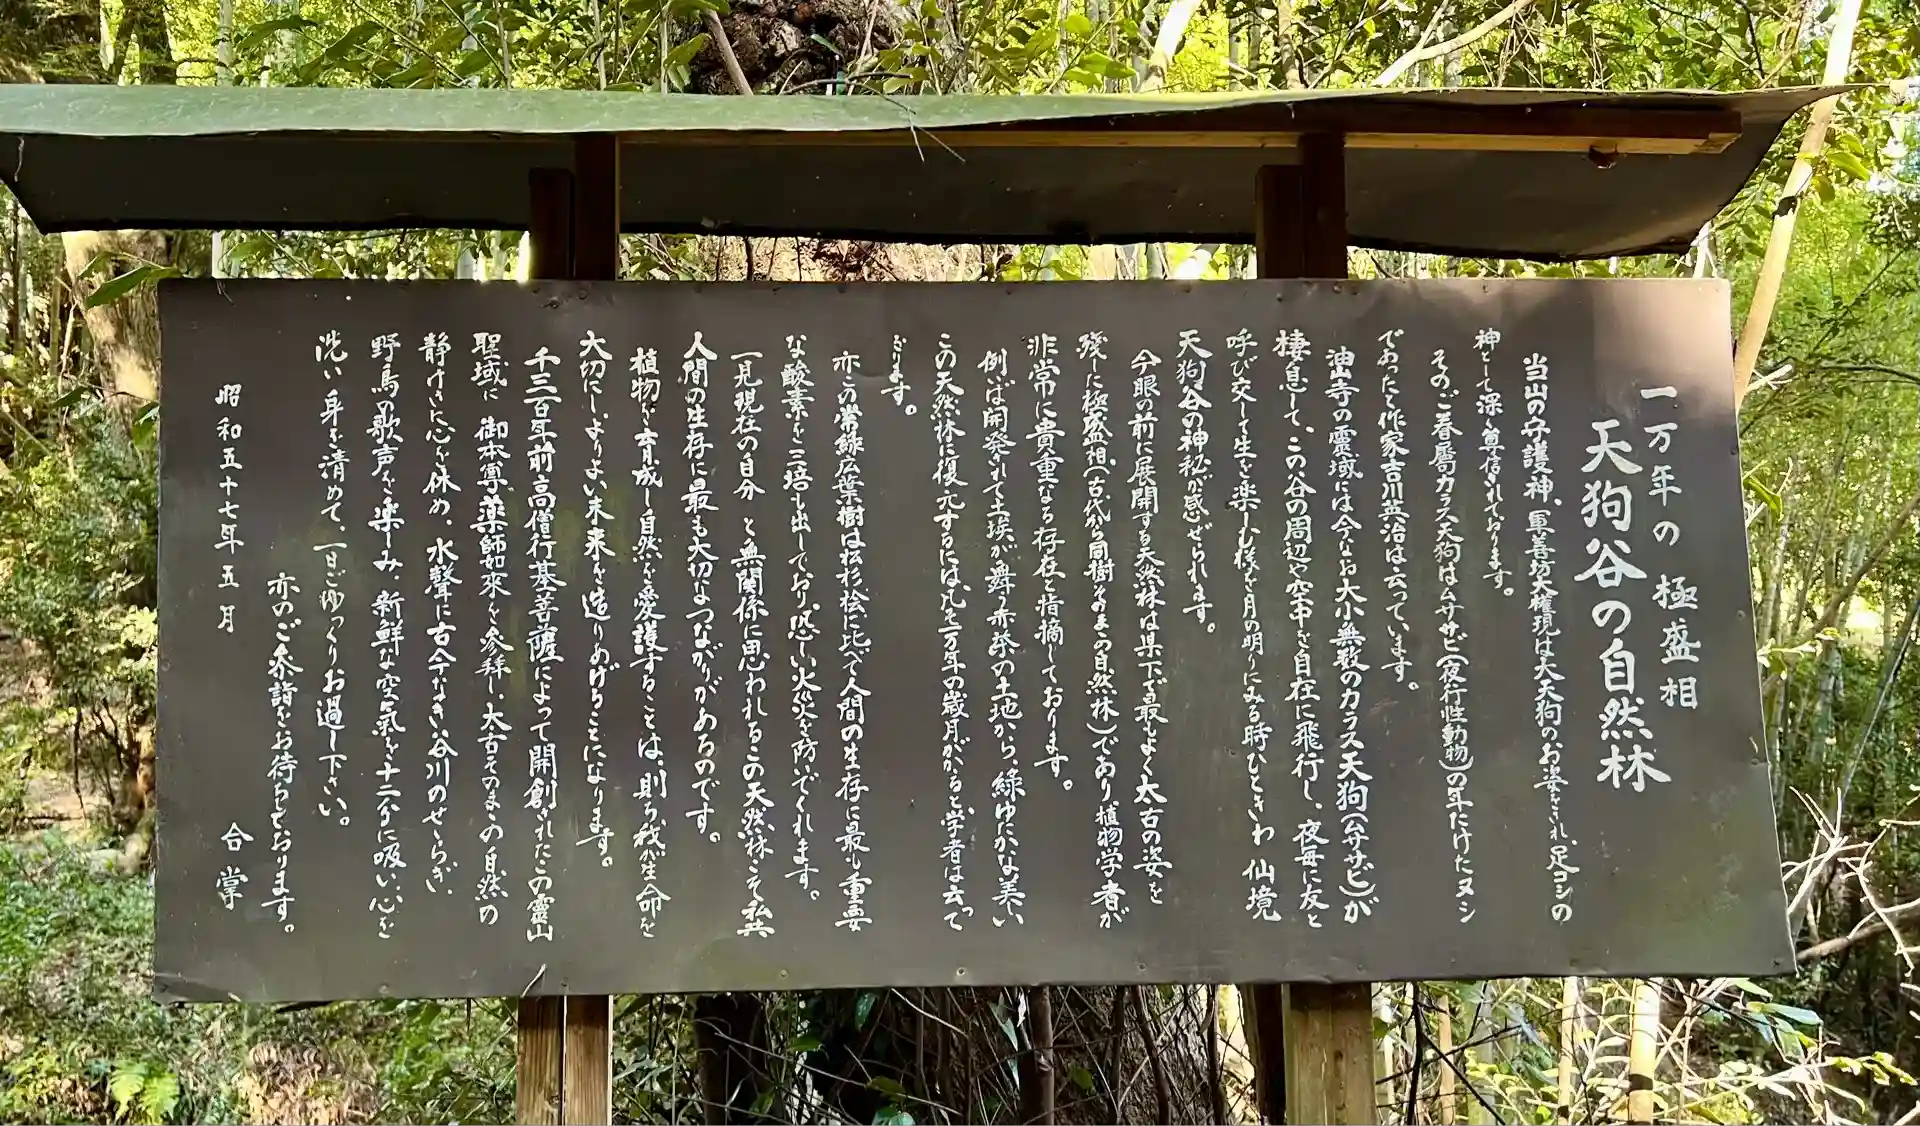 一万年の 極盛相
天狗谷の自然林
当山の守護神、軍善坊大権現は大天狗のお姿をされ、足コシの
神として深く尊信されております。
そのご眷属カラス天狗はムササビ(夜行性動物)の年たけたヌシ
であったと作家吉川英治は云っています。
油山寺の霊域には今なお大小無数のカラス天狗(ムササビ)が
棲息して、この谷の周辺や空中を自在に飛行し、夜毎に友と
呼び交して生を楽しむ様を月の明りにみる時ひときわ 仙境
天狗谷の神秘が感ぜられます。
今眼の前に展開する天然林は県下で最もよく太古の姿を
残した極盛相(古代から同樹そのまゝの自然林)であり植物学者が
非常に貴重なる存在と指摘しております。
例いば開発されて土埃が舞う赤茶の土地から、緑ゆたかな美しい
この天然林に復元するには凡そ一万年の歳月がかゝると学者は云って
おります。
亦この常緑広葉樹は松杉桧に比べて人間の生存に最も重要
な酸素を三倍も出しており恐しい火災を防いでくれます。
一見現在の自分 と無関係に思われるこの天然林こそ私共
人間の生存に最も大切なつながりがあるのです。
植物を育成し自然を愛護することは、則ち我が生命を
大切にし、よりよい未来を造りあげることになります。
千三百年前高僧行基菩薩によって開創されたこの霊山
聖域に 御本尊薬師如来を参拝し、太古そのまゝの自然の
静けさに心を休め、水聲に古今なき谷川のせゝらぎ、
野鳥の歌声を楽しみ、新鮮な空氣を十二分に吸い、心を
洗い身を清めて、一日ごゆっくりお過し下さい。
亦のご参詣をお待ちしております。
昭和五十七年五月 合掌